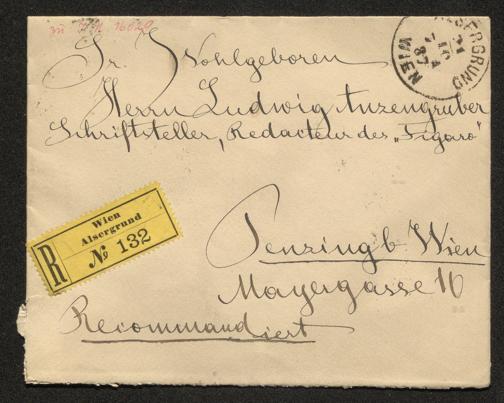 Sr. Wohlgeboren
Herrn Ludwig Anzengruber
Schriftsteller, Redacteur des "Figaro"
WIEN ALSERGRUND
87
Wien
Alsergrund
R № 132
Penzing b Wien
Mayergasse 10
Recommandiert